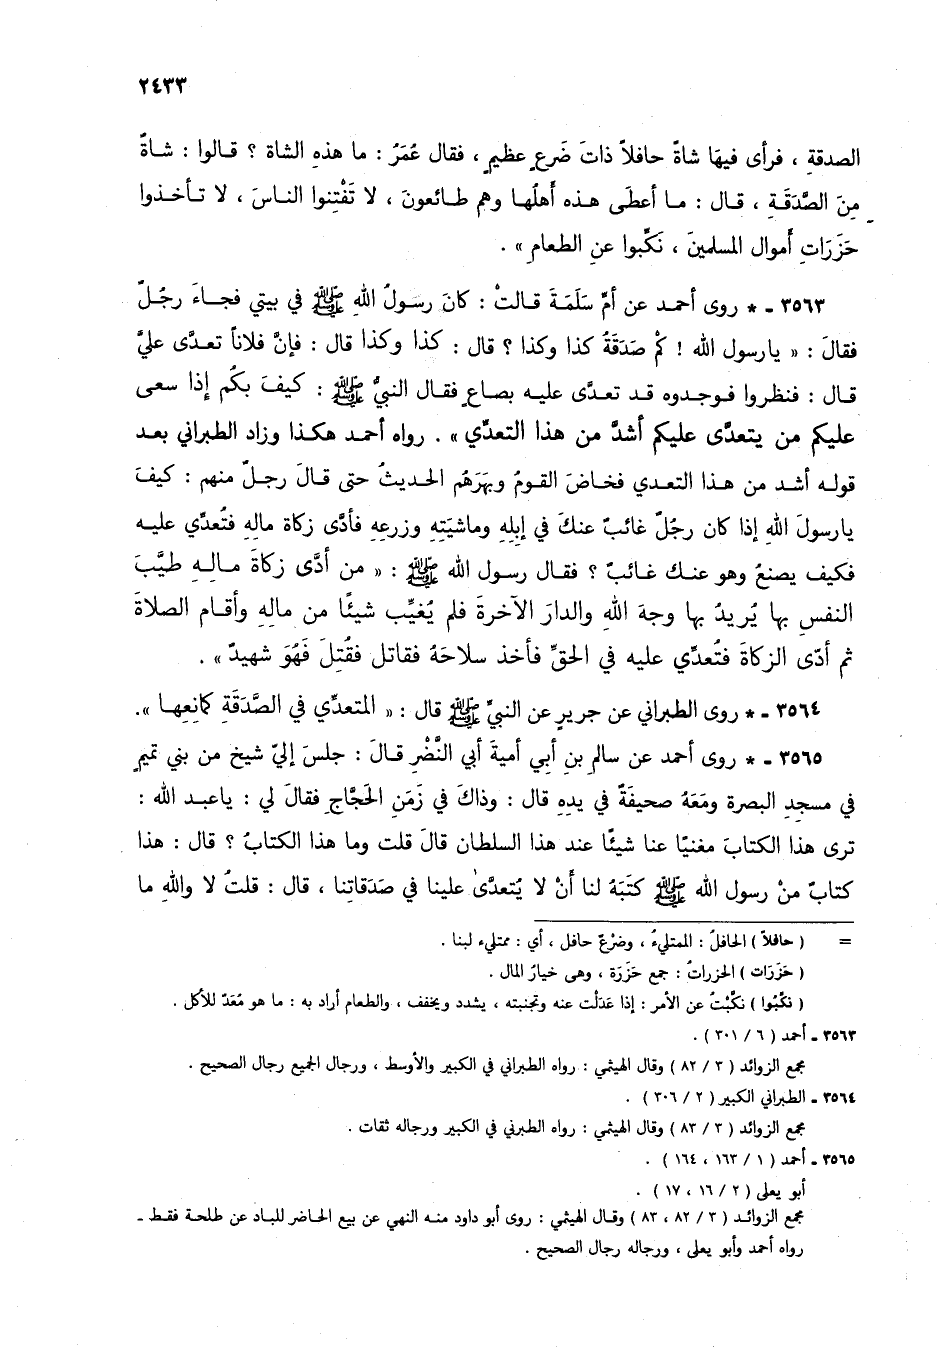 ٢٤٣٣
الصدقةِ ، فرأى فيهَا شاةً حافلاً ذاتَ ضَرعٍ عظيمٍ ، فقال عُمَرُ : ما هذهِ الشاة ؟ قـالوا : شـاةً
مِنَ الصَّدَقَـةِ ، قـال : مـا أعطَى هـذه أَهلُهـا وهم طـائعونَ ، لا تَفْتِنوا النـاسَ ، لا تـأخـذوا
حَزَرَاتِ أَموال المسلمينَ ، نَكِّبوا عنِ الطعام » .
٣٥٦٣ ـ * روى أحمـد عن أمِّ سَلَمَـةَ قـالتْ : كانَ رسـولُ اللهِ ﷺ في بيتي فجـاءَ رجُـلٌ
فقالَ : « يارسول الله ! كمْ صَدَقَةُ كذا وكذا ؟ قال : كذا وكذا قال : فإنَّ فلاناً تعـدَّى عليَّ
قـال : فنظـروا فـوجـدوه قـد تعـدَّى عليـه بصـاعٍ فقـال النبيُّ ﷺ : كيفَ بكُم إذا سعى
عليكم من يتعدَّى عليكم أشدَّ من هذا التعدِّي » . رواه أحمـد هكـذا وزاد الطبراني بعـد
قولـه أشـد من هـذا التعـدي فخـاضَ القـومُ وبهَرَهُم الحـديثُ حتى قـالَ رجـلٌ منهم : كيفَ
يارسولَ اللهِ إذا كان رجُلٌ غائبٌ عنكَ في إبلِهِ وماشيَتِهِ وزرعِهِ فأدَّى زكاةَ مالِهِ فتُعدِّي عليـه
فكيف يصنعُ وهو عنـك غـائبٌ ؟ فقـال رسـول الله ﷺ : « من أدَّى زكاةَ مـالِـهِ طيَّبَ
النفسِ بها يُريدُ بها وجهَ اللهِ والدارَ الآخرةَ فلم يُغيِّب شيئًا من مالِهِ وأقـام الصلاةَ
ثم أدّى الزكاةَ فتُعدِّي عليه في الحقِّ فأخذ سلاحَهُ فقاتل فقُتِلَ فَهُوَ شهيدٌ » .
٣٥٦٤ ـ * روى الطبراني عن جريرٍ عن النبيِّ ﷺ قال : « المتعدِّي في الصَّدَقَةِ كَانِعِهـا » .
٣٥٦٥ ـ * روى أحمد عن سالم بنِ أبي أميةَ أبي النَّضْرِ قـالَ : جلسَ إليّ شيخ من بني تميمٍ
في مسجدِ البصرة ومَعَهُ صحيفَةٌ في يدِهِ قال : وذاكَ في زَمَنِ الحَجَّاجِ فقالَ لي : ياعبـد الله :
ترى هذا الكتابَ مغنيًا عنا شيئًا عند هذا السلطان قالَ قلت وما هذا الكتابُ ؟ قال : هذا
كتابٌ منْ رسول الله ﷺ كتبَهُ لنا أنْ لا يُتعدَّىٰ علينا في صَدَقاتِنا ، قال : قلتُ لا واللهِ ما
= ( حافلاً ) الحافلُ : الممتليءُ ، وضرْعٌ حافل ، أي : ممتليء لبنا .
( حَزَرَات ) الحزراتُ : جمع حَزرَة ، وهى خيارُ المال .
( نكِّبُوا ) نكَّبْتُ عن الأمر : إذا عَدَلْت عنه وتجنبته ، يشدد ويخفف ، والطعام أراد به : ما هو مُعَدّ للأكل .
٣٥٦٣ ـ أحمد ( ٦ / ٣٠١ ) .
مجمع الزوائد ( ٣ / ٨٢ ) وقال الهيثمي : رواه الطبراني في الكبير والأوسط ، ورجال الجميع رجال الصحيح .
٣٥٦٤ ـ الطبراني الكبير ( ٢ / ٣٠٦ ) .
مجمع الزوائد ( ٣ / ٨٣ ) وقال الهيثمي : رواه الطبرني في الكبير ورجاله ثقات .
٣٥٦٥ ـ أحمد ( ١ / ١٦٣ ، ١٦٤ ) .
أبو يعلى ( ٢ / ١٦ ، ١٧ ) .
مجمع الزوائـد ( ٣ / ٨٢ ، ٨٣ ) وقـال الهيثمي : روى أبو داود منـه النهي عن بيع الحـاضر للبـاد عن طلحـة فقـط ـ
رواه أحمد وأبو يعلى ، ورجاله رجال الصحيح .